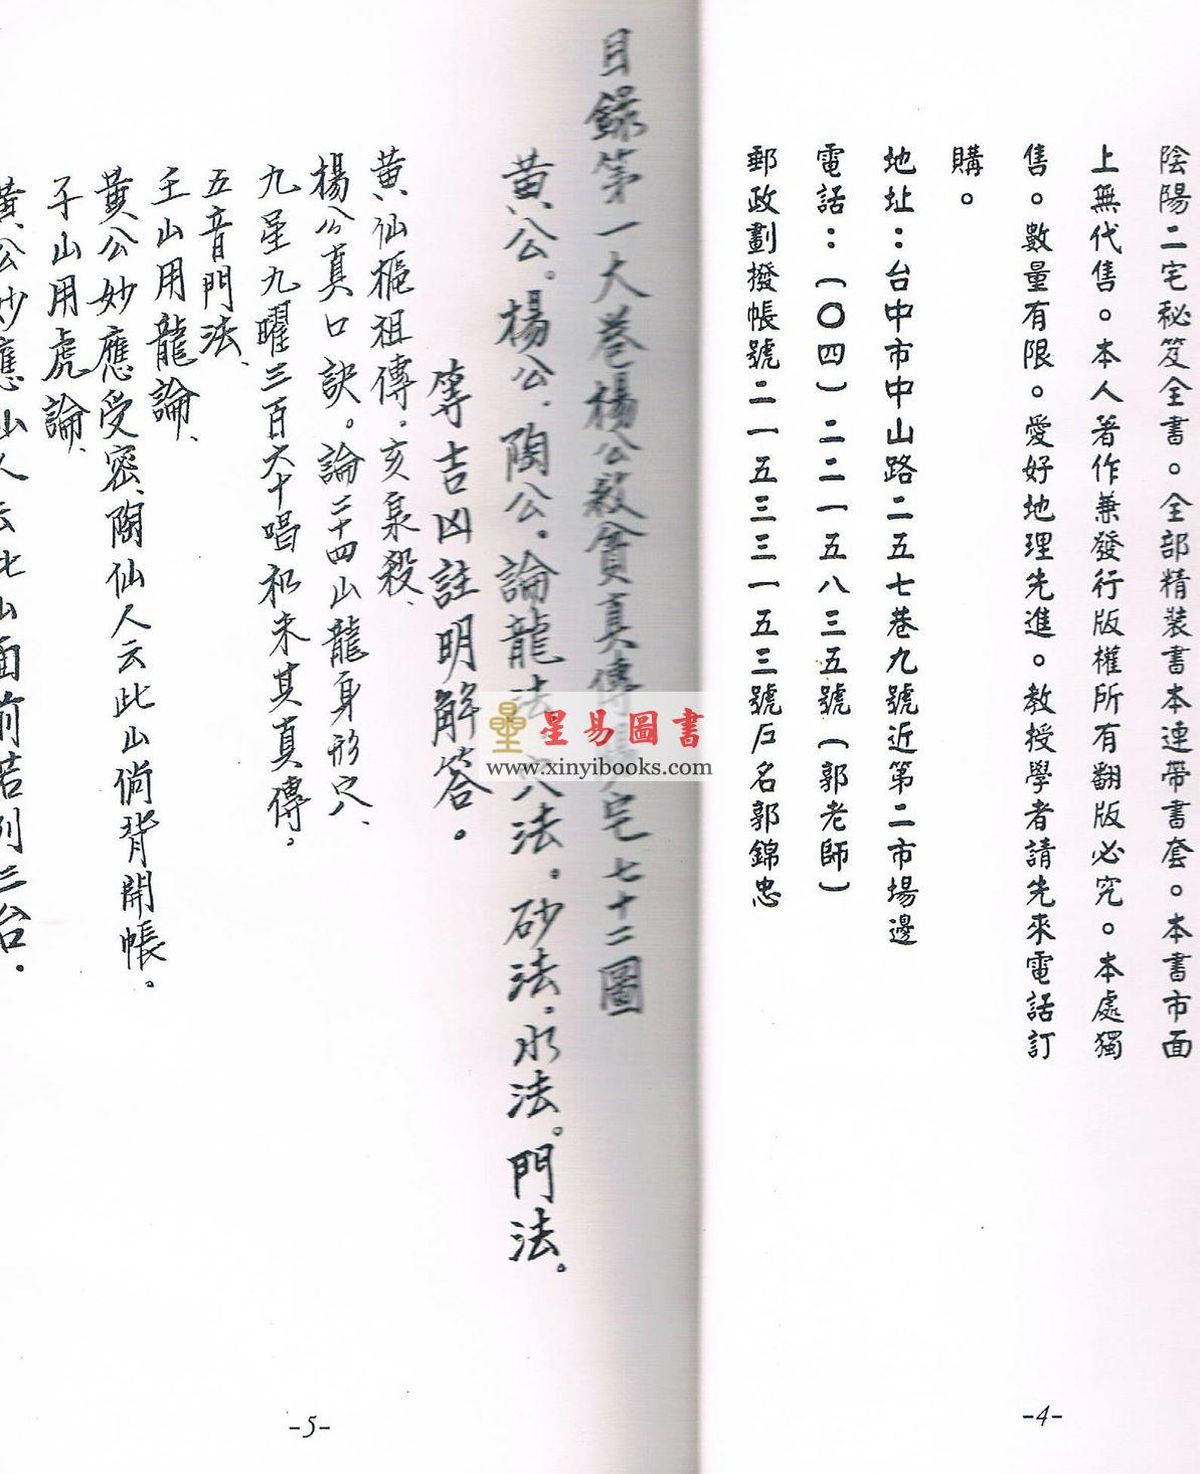 陰陽二宅秘笈全書。全部精裝書本連帶書套。本書市面
上無代售。本人著作兼發行版權所有翻版必究。本處獨
售。數量有限。愛好地理先進。教授學者請先來電話訂
購。
地址：台中市中山路二五七巷九號近第二市場邊
電話：（〇四）二二一五八三五號（郭老師）
郵政劃撥帳號二一五三三一五三號戶名郭錦忠
-4-
目錄第一大卷楊公救貧真傳宅七十二圖
黃公。楊公。陶公。論龍法。穴法。砂法。水法。門法。
等吉凶註明解答。
黃仙樞祖傳。亥梟殺、
楊公真口訣。論二十四山龍身形穴、
九星九曜三百六十唱和未其真傳。
五音門法、
壬山用龍論、
黃公妙應受密、陶仙人云此山倘背開帳。
子山用虎論、
黃公妙應山人云此山面前若列三台。
-5-
星易圖書
www.xinyibooks.com